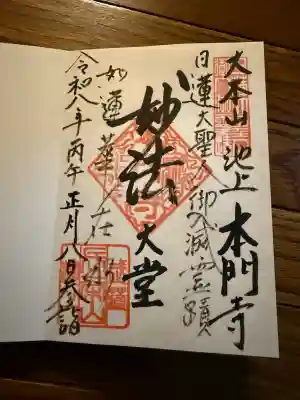 大本山 池上 本門寺
日蓮大聖人御入滅霊蹟
妙法 大堂
如蓮華在水
令和八年丙午正月八日参詣